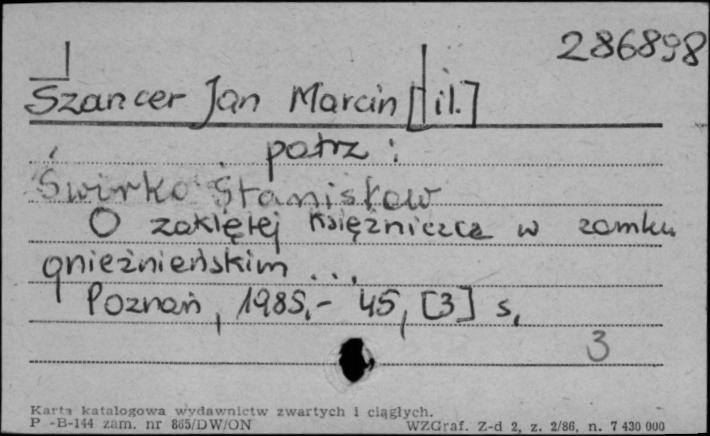 286898
Szancer Jan Marcin [il.]
patrz:
Świrko Stanisław
O zaklętej księżniczce w zamku
gnieźnieńskim ...
Poznań, 1985.- 45, [3] s.
3
Karta katalogowa wydawnictw zwartych i ciągłych.
P -B-144 zam. nr 865/DW/ON WZGraf. Z-d 2, z. 2/86, n. 7 430 000